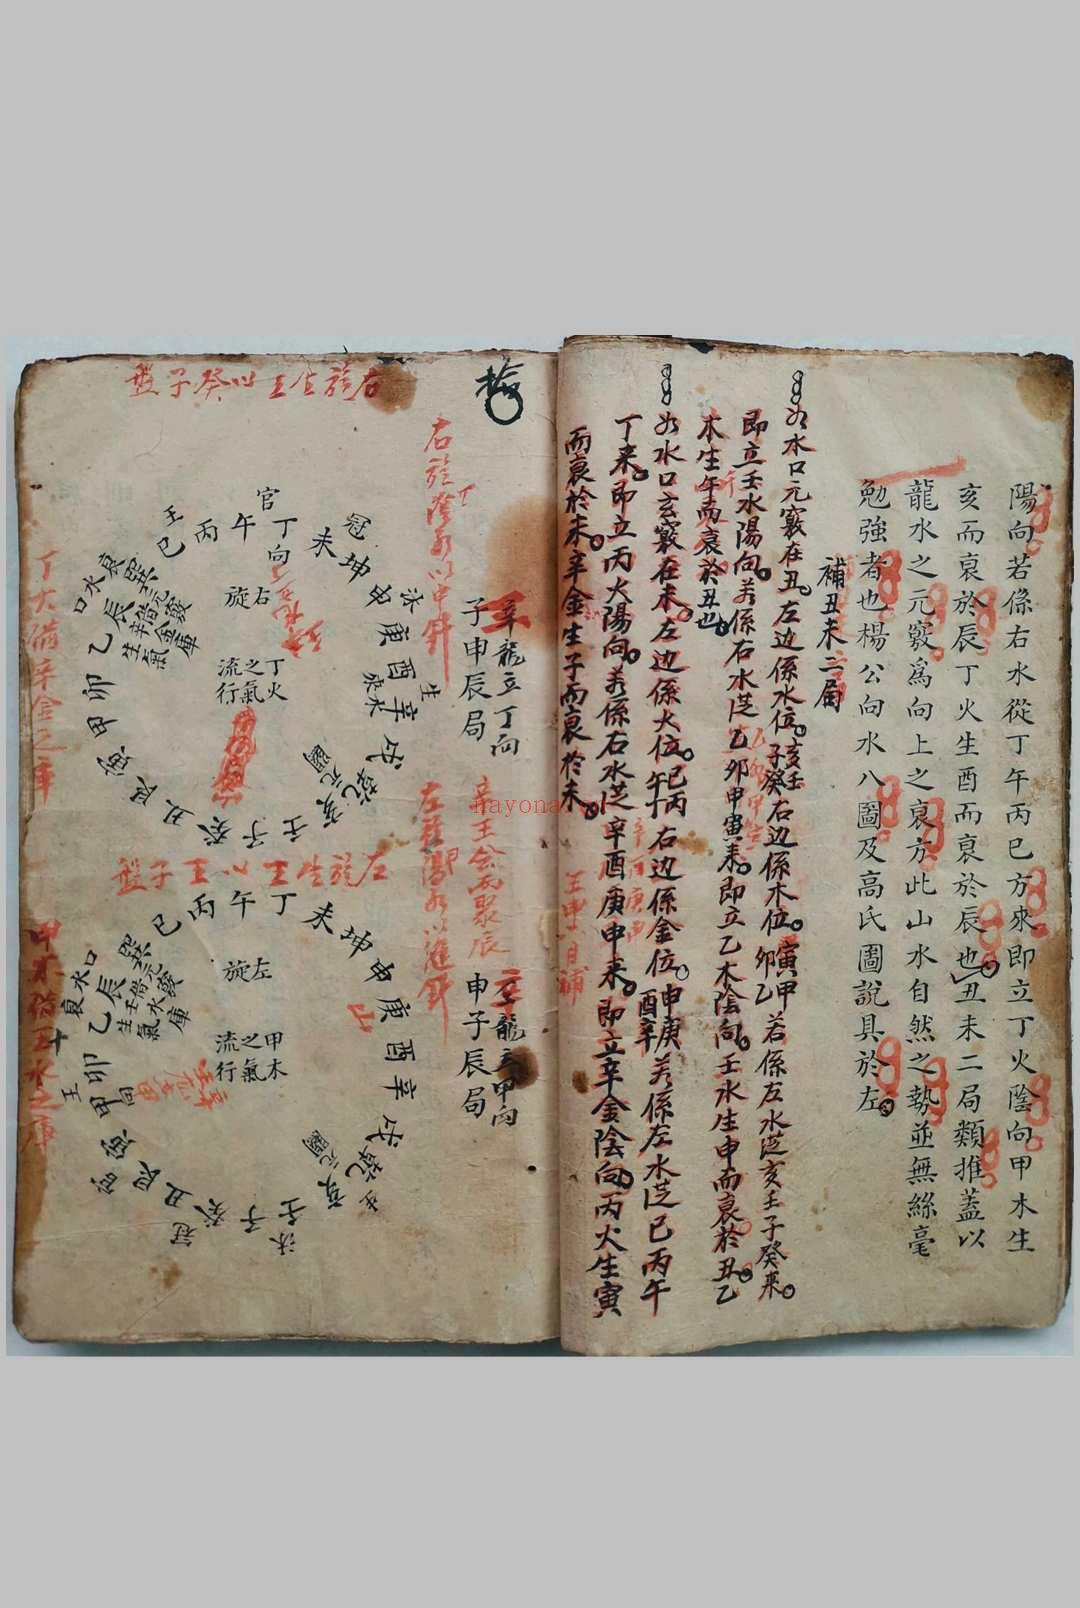 陽向若係右水從丁午丙巳方來即立丁火陰向甲木生
亥而衰於辰丁火生酉而衰於辰也丑未二局類推蓋以
龍水之元竅為向上之衰方此山水自然之勢並無絲毫
勉強者也楊公向水八圖及高氏圖說具於左
補丑未二局
如水口元竅在丑左边係水位亥壬子癸右边係木位寅甲卯乙若係左水從亥壬子癸來
即立壬水陽向若係右水從乙卯甲寅來即立乙木陰向壬水生申而衰於丑乙
木生午而衰於丑也
如水口玄竅在未左边係火位巳丙午丁右边係金位申庚酉辛若係左水從巳丙午
丁來即立丙火陽向若係右水從辛酉庚申來即立辛金陰向丙火生寅
而衰於未辛金生子而衰於未
壬申日補
辛龍立丁向
子申辰局
辛壬會而聚辰
辛龍立甲向
申子辰局
右旋生王以癸子盤
官
丁向
午
丙
巳
王
冠
未
坤
申
沐
庚
酉
生
辛
來水
戌
乾
元關
亥
壬
子
癸
丑
艮
寅
甲
卯
乙
辰
巽
水口
衰
右旋
丁火
之氣
流行
丁火借辛金之庫
左旋生王以壬子盤
巳
丙
午
丁
未
坤
申
庚
酉
辛
戌
乾
元關
亥
生
壬
子
沐
癸
丑
冠
艮
寅
官
甲向
卯
王
乙
辰
巽
水口
衰
左旋
甲木
之氣
流行
甲木借壬水之庫